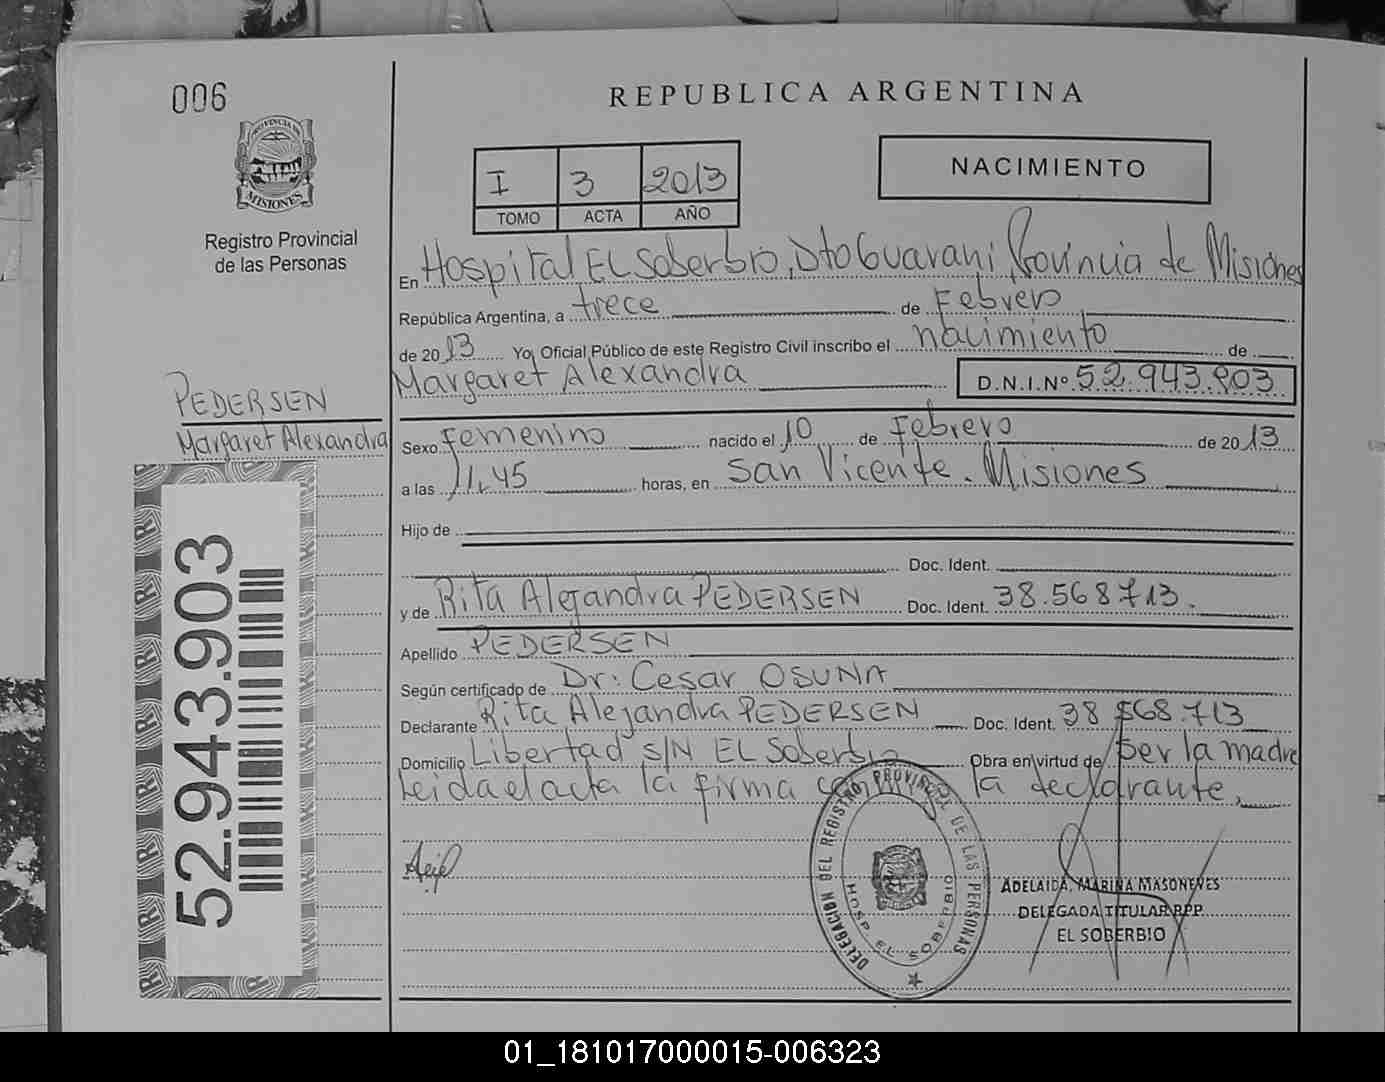 006
PROVINCIA DE
MISIONES
Registro Provincial
de las Personas
PEDERSEN
Margaret Alexandra
52.943.903
REPUBLICA ARGENTINA
I 3 2013
TOMO ACTA AÑO
NACIMIENTO
En Hospital EL Soberbio, Dto Guaraní Provincia de Misiones
República Argentina, a trece de Febrero
de 2013 Yo, Oficial Público de este Registro Civil inscribo el nacimiento de
Margaret Alexandra D.N.I.Nº 52.943.903
Sexo Femenino nacido el 10 de Febrero de 2013
a las 11.45 horas, en San Vicente. Misiones
Hijo de
Doc. Ident.
y de Rita Alejandra PEDERSEN Doc. Ident. 38.568.713.
Apellido PEDERSEN
Según certificado de Dr: Cesar OSUNA
Declarante Rita Alejandra PEDERSEN Doc. Ident. 38.568.713
Domicilio Libertad S/N EL Soberbio Obra en virtud de ser la madre
Leida el acta la firma la declarante,
DELEGACION DEL REGISTRO PROVINCIAL DE LAS PERSONAS
HOSP. EL SOBERBIO
ADELAIDA, MARINA MASONEVES
DELEGADA TITULAR RPP
EL SOBERBIO
01_181017000015-006323